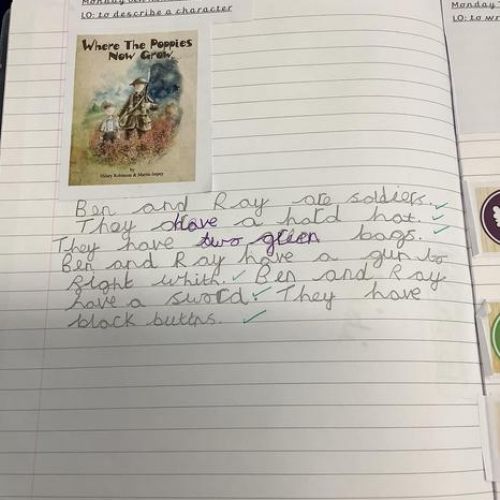 LO: to describe a character
Monday
LO: to wr
Where The Poppies
Now Grow
by
Hilary Robinson & Martin Impey
Ben and Ray are soldiers.
They have a hard hat.
They have two green bags.
Ben and Ray have a gun to
fight whith. Ben and Ray
have a sword. They have
black buttns.